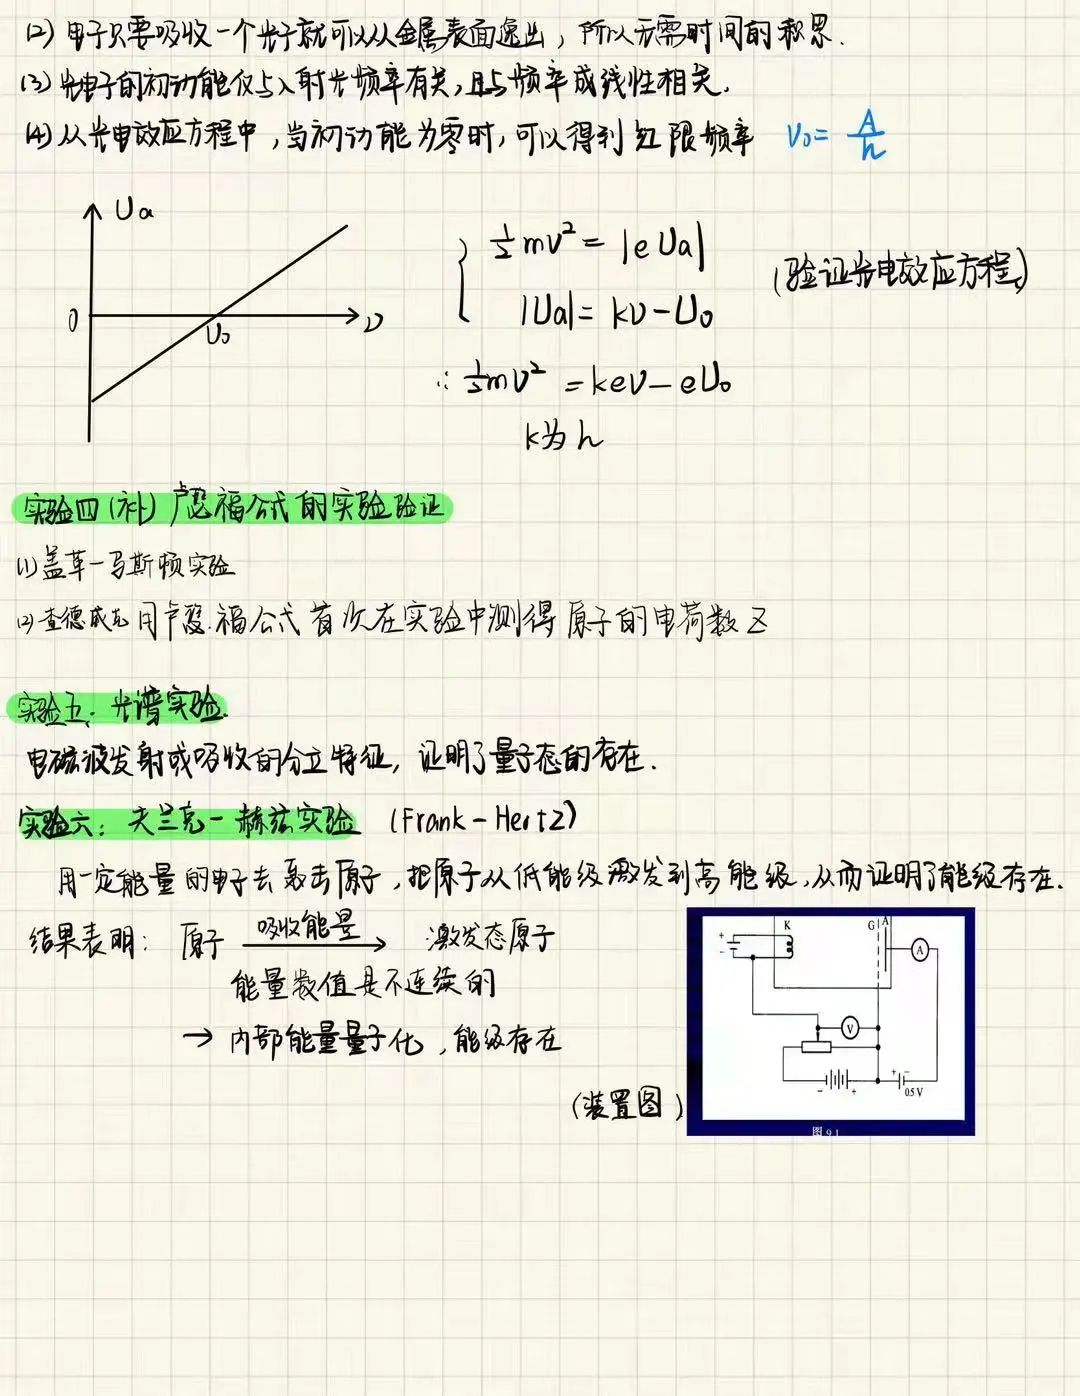 (2) 电子只要吸收一个光子就可以从金属表面逸出，所以无需时间的积累.
(3) 光电子的初动能仅与入射光频率有关，且与频率成线性相关.
(4) 从光电效应方程中，当初动能为零时，可以得到红限频率 ν₀ = A/h
Ua
0
U₀
ν
½mv² = |eUa|
|Ua| = kν - U₀
(验证光电效应方程)
∴ ½mv² = keν - eU₀
k为h
实验四(补) 卢瑟福公式的实验验证
(1) 盖革-马斯顿实验
(2) 查德威克用卢瑟福公式首次在实验中测得原子的电荷数Z
实验五：光谱实验.
电磁波发射或吸收的分立特征，证明了量子态的存在.
实验六：夫兰克-赫兹实验 (Frank-Hertz)
用一定能量的电子去轰击原子，把原子从低能级激发到高能级，从而证明了能级存在.
结果表明：原子 吸收能量 → 激发态原子
能量数值是不连续的
→ 内部能量量子化，能级存在
(装置图)
K
G
A
+
-
A
V
- +
+ -
0.5 V
图 9.1